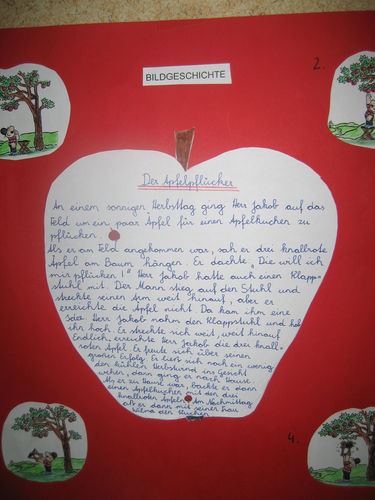 2.
BILDGESCHICHTE
Der Apfelpflücker
An einem sonnigen Herbsttag ging Herr Jakob auf das
Feld um ein paar Äpfel für einen Apfelkuchen zu
pflücken.
Als er am Feld angekommen war, sah er drei knallrote
Äpfel am Baum hängen. Er dachte, „Die will ich
mir pflücken!" Herr Jakob hatte auch einen Klapp-
stuhl mit. Der Mann stieg auf den Stuhl und
streckte seinen Arm weit hinauf, aber er
erreichte die Äpfel nicht. Da kam ihm eine
Idee. Herr Jakob nahm den Klappstuhl und hob
ihn hoch. Er streckte sich weit, weit hinauf.
Endlich, erreichte Herr Jakob die drei knall-
roten Äpfel. Er freute sich über seinen
großen Erfolg. Er ließ sich noch ein wenig
den kühlen Herbstwind ins Gesicht
wehen, dann ging er nach Hause.
Als er zu Hause war, backte er dann
einen Apfelkuchen mit den drei
knallroten Äpfeln. Am Nachmittag
aß er dann mit seiner Frau
Wilma den Kuchen.
4.